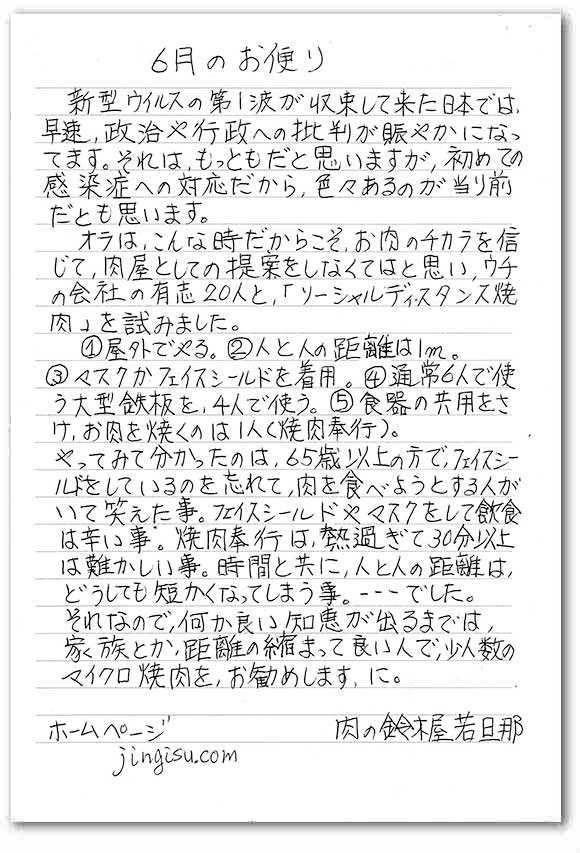 6月のお便り
新型ウイルスの第1波が収束して来た日本では、
早速、政治や行政への批判が賑やかになっ
てます。それは、もっともだと思いますが、初めての
感染症への対応だから、色々あるのが当り前
だとも思います。
オラは、こんな時だからこそ、お肉のチカラを信
じて、肉屋としての提案をしなくてはと思い、ウチ
の会社の有志20人と、「ソーシャルディスタンス焼
肉」を試みました。
①屋外でやる。②人と人の距離は1m。
③マスクかフェイスシールドを着用。④通常6人で使
う大型鉄板を、4人で使う。⑤食器の共用をさ
け、お肉を焼くのは1人(焼肉奉行)。
やってみて分かったのは、65歳以上の方で、フェイスシー
ルドをしているのを忘れて、肉を食べようとする人が
いて笑えた事。フェイスシールドやマスクをして飲食
は辛い事。焼肉奉行は、熱過ぎて30分以上
は難かしい事。時間と共に、人と人の距離は、
どうしても短かくなってしまう事。---でした。
それなので、何か良い知恵が出るまでは、
家族とか、距離の縮まって良い人で、少人数の
マイクロ焼肉を、お勧めします、に。
ホームページ 肉の鈴木屋 若旦那
jingisu.com